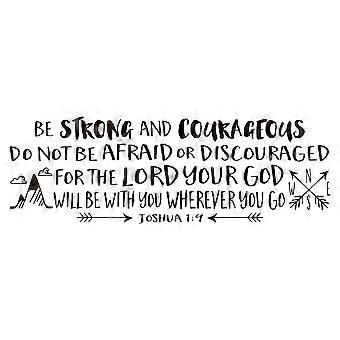 BE STRONG AND COURAGEOUS
DO NOT BE AFRAID OR DISCOURAGED
FOR THE LORD YOUR GOD
WILL BE WITH YOU WHEREVER YOU GO
JOSHUA 1:9
N
W E
S